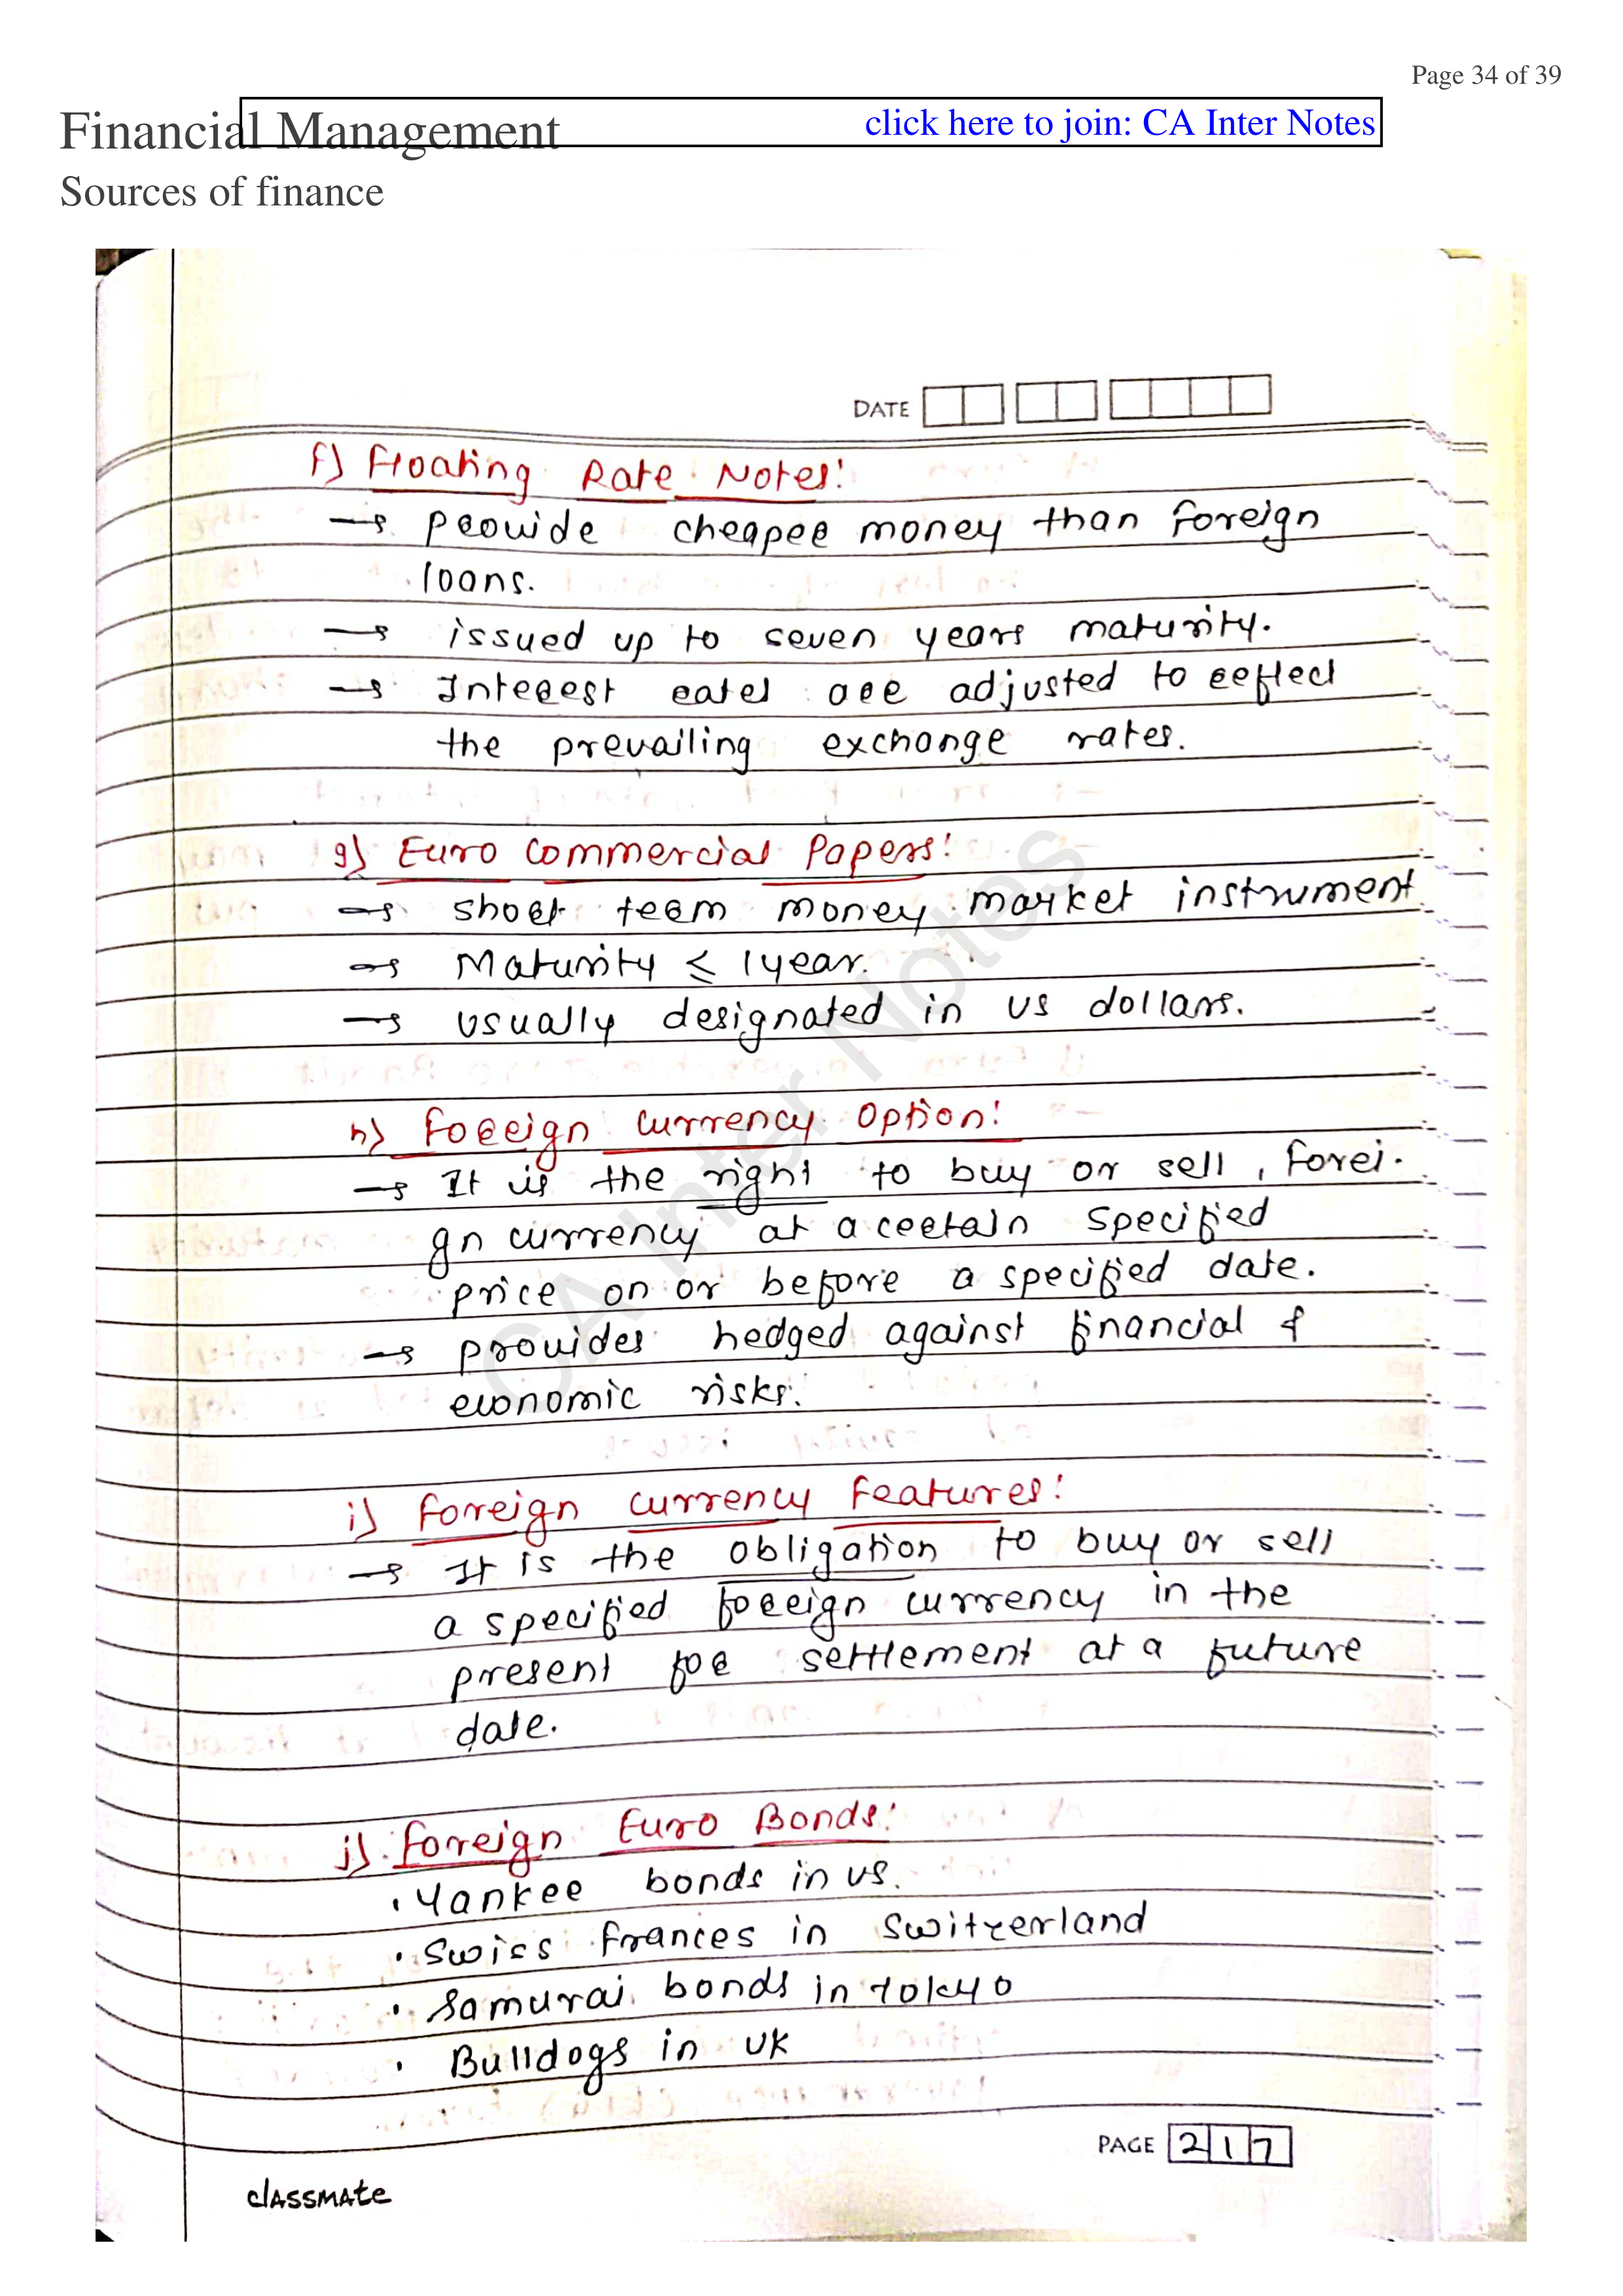 Page 34 of 39
Financial Management
click here to join: CA Inter Notes
Sources of finance
DATE
f) Floating Rate Notes:
→ Provide cheaper money than foreign
loans.
→ issued up to seven years maturity.
→ Interest rates are adjusted to reflect
the prevailing exchange rates.
g) Euro Commercial Papers:
→ short term money market instrument
→ Maturity ≤ 1 year.
→ usually designated in US dollars.
h) Foreign Currency Option:
→ It is the right to buy or sell, forei-
gn currency at a certain specified
price on or before a specified date.
→ provides hedged against financial &
economic risks.
i) Foreign currency Features:
→ It is the obligation to buy or sell
a specified foreign currency in the
present for settlement at a future
date.
j) Foreign Euro Bonds:
• Yankee bonds in US.
• Swiss Frances in Switzerland
• Samurai bonds in Tokyo
• Bulldogs in UK
PAGE 217
classmate
CA Inter Notes